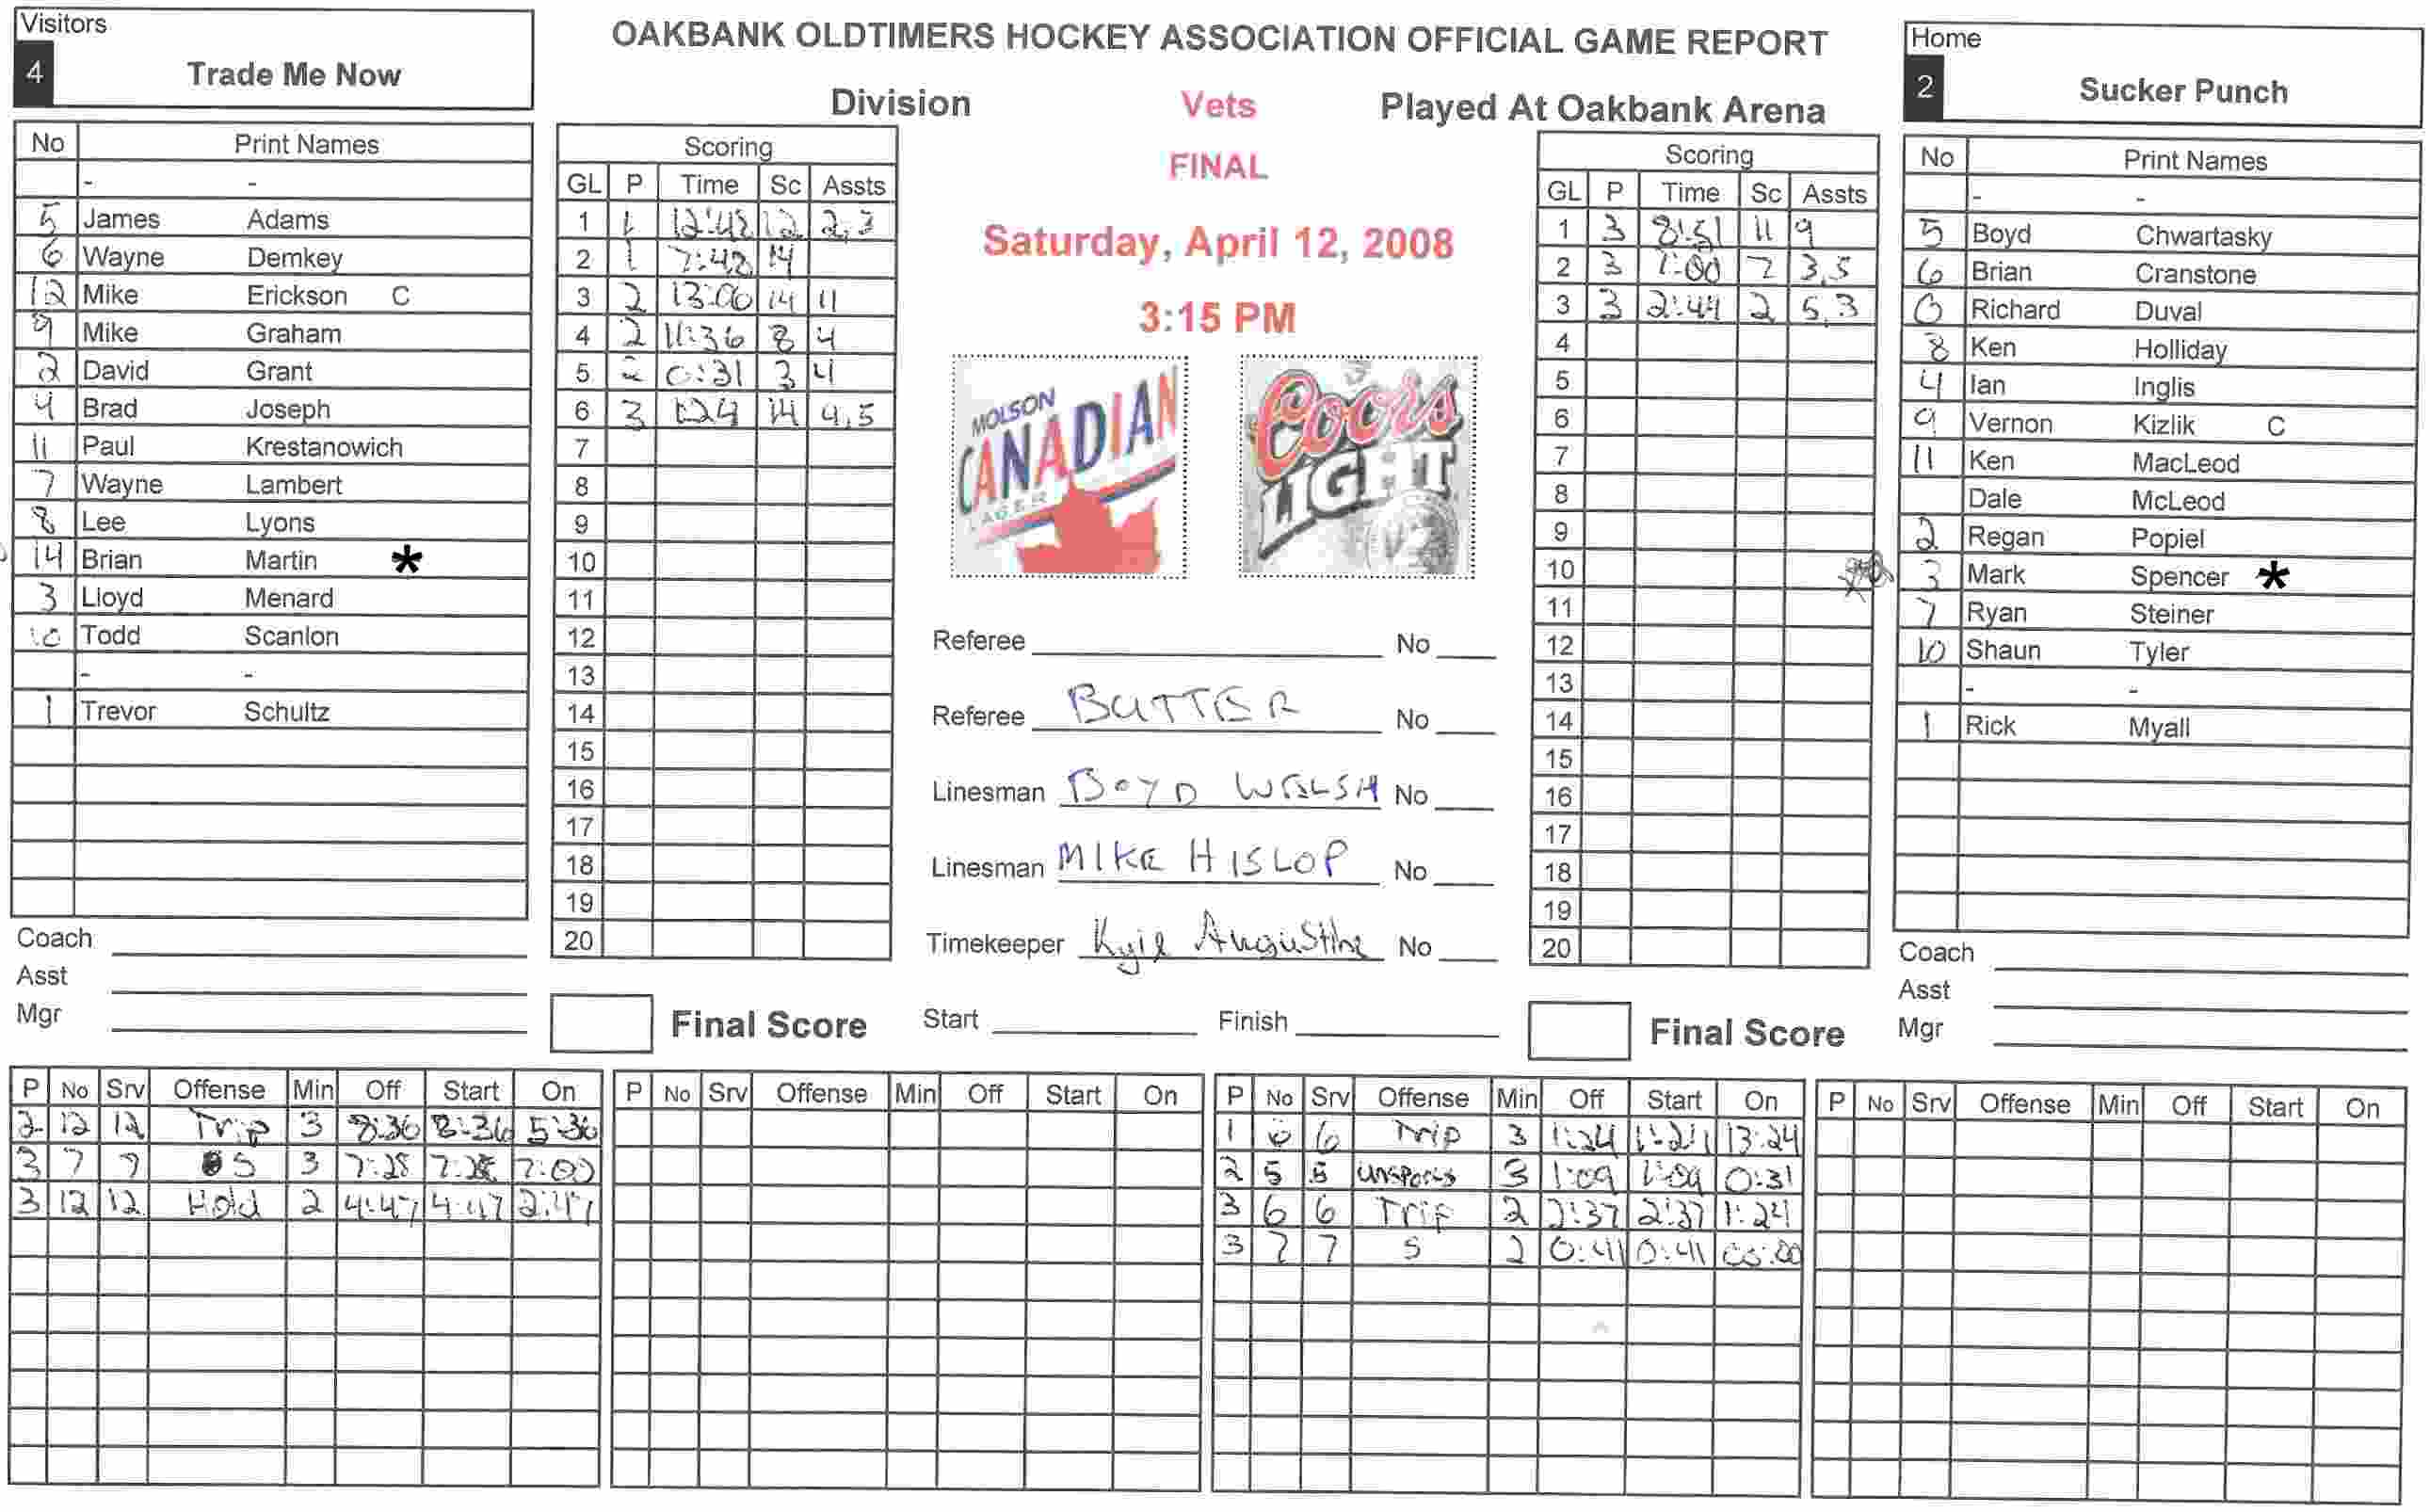 Visitors
4 Trade Me Now
OAKBANK OLDTIMERS HOCKEY ASSOCIATION OFFICIAL GAME REPORT
Division Vets Played At Oakbank Arena
FINAL
Saturday, April 12, 2008
3:15 PM
Home
2 Sucker Punch
No Print Names
- -
5 James Adams
6 Wayne Demkey
12 Mike Erickson C
9 Mike Graham
2 David Grant
4 Brad Joseph
11 Paul Krestanowich
7 Wayne Lambert
8 Lee Lyons
14 Brian Martin *
3 Lloyd Menard
10 Todd Scanlon
- -
1 Trevor Schultz
Coach
Asst
Mgr
Scoring
GL P Time Sc Assts
1 1 12:48 12 2,3
2 1 7:48 14
3 2 13:06 14 11
4 2 11:36 8 4
5 2 0:31 3 4
6 3 1:24 14 4,5
7
8
9
10
11
12
13
14
15
16
17
18
19
20
Final Score
MOLSON
CANADIAN
LAGER
Coors
LIGHT
Referee No
Referee BUTTER No
Linesman BOYD WELSH No
Linesman MIKE HISLOP No
Timekeeper Kyle Augustine No
Start Finish
Scoring
GL P Time Sc Assts
1 3 8:51 11 9
2 3 7:00 7 3,5
3 3 2:44 2 5,3
4
5
6
7
8
9
10
11
12
13
14
15
16
17
18
19
20
Final Score
No Print Names
- -
5 Boyd Chwartasky
6 Brian Cranstone
0 Richard Duval
8 Ken Holliday
4 Ian Inglis
9 Vernon Kizlik C
11 Ken MacLeod
Dale McLeod
2 Regan Popiel
3 Mark Spencer *
7 Ryan Steiner
10 Shaun Tyler
- -
1 Rick Myall
Coach
Asst
Mgr
P No Srv Offense Min Off Start On
2 12 12 Trip 3 8:36 8:36 5:36
3 7 7 S 3 7:28 7:28 7:00
3 12 12 Hold 2 4:47 4:47 2:47
P No Srv Offense Min Off Start On
P No Srv Offense Min Off Start On
1 6 6 Trip 3 1:24 1:24 13:24
2 5 5 UNSPORTS 3 1:09 1:09 0:31
3 6 6 Trip 2 2:37 2:37 1:24
3 7 7 S 2 0:41 0:41 00:00
P No Srv Offense Min Off Start On